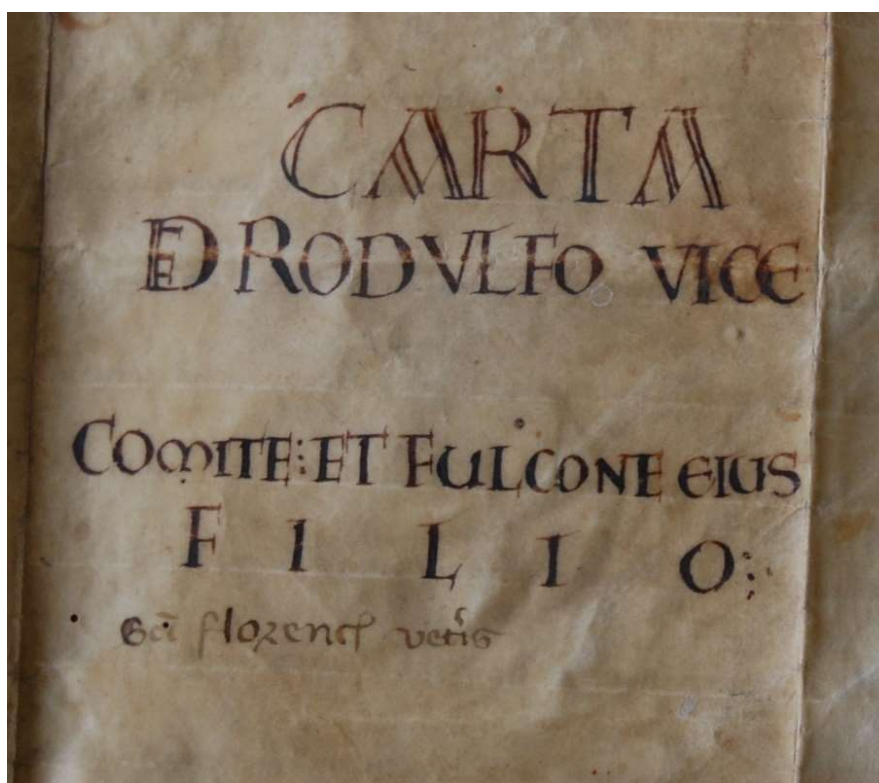 CARTA
DE RODVLFO VICE
COMITE: ET FULCONE EIUS
FILIO:
Sci florencii vetis